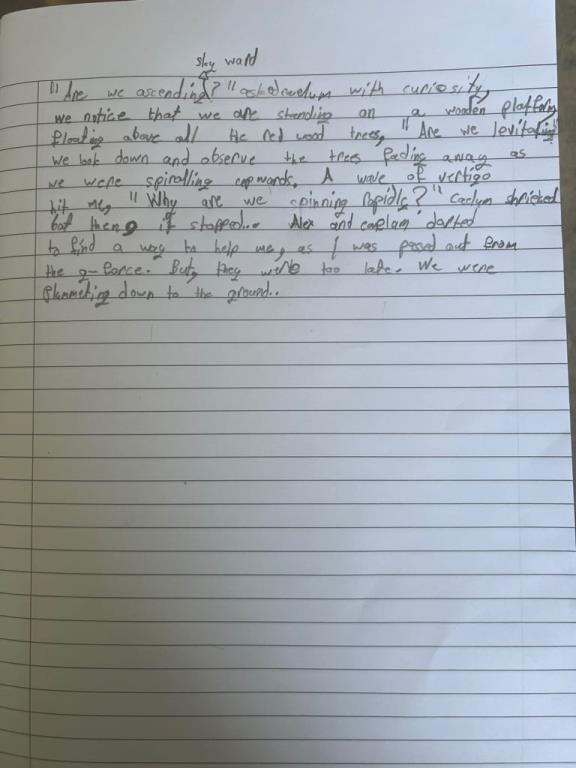 sky ward
"Are we ascending?" asked with curiosity,
we notice that we are standing on a wooden platform
floating above all the red wood trees, "Are we levitating"
we look down and observe the trees fading away as
we were spiralling upwards. A wave of vertigo
hit me, "Why are we spinning rapidly?" Caelym shrieked
but then, it stopped... Alex and caelam darted
to find a way to help me, as I was passed out from
the g-force. But, they were too late. We were
plummeting down to the ground..